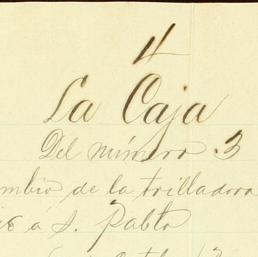 4
La Caja
Del número 3
mbio de la trilladora
á S. Pablo